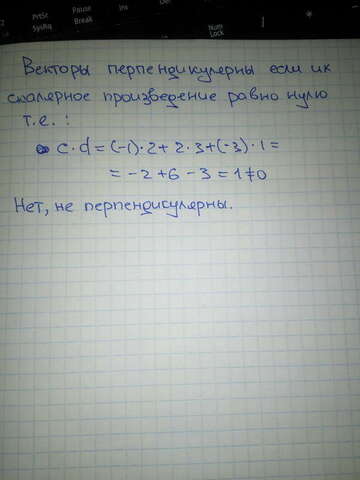 PrtSc
SysRq
Pause
Break
Ins
Del
Num
Lock
Векторы перпендикулерны если их
скалярное произведение равно нулю
т.е. :
c·d=(-1)·2+2·3+(-3)·1=
= -2+6-3=1≠0
Нет, не перпендисулерны.